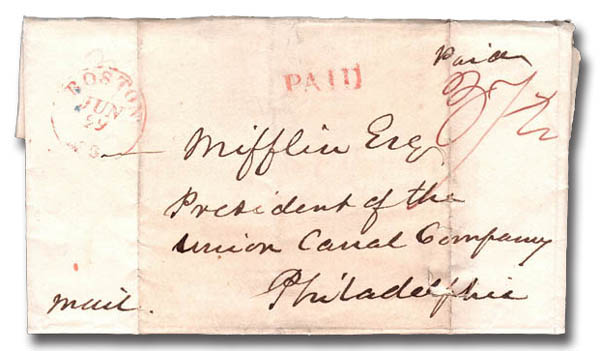 BOSTON
JUN
29
MS
PAID
Paid
37½
— Mifflin Esq
President of the
Union Canal Company
Philadelphia
mail.